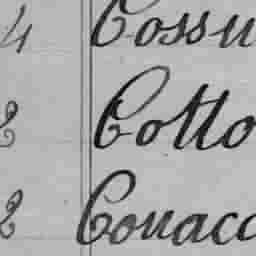 4 Cossu
2 Cotto
2 Conacc